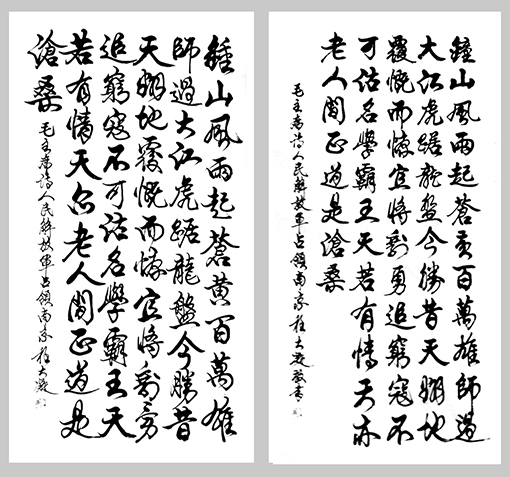 鍾山風雨起蒼黃百萬雄
師過大江虎踞龍盤今勝昔
天翻地覆慨而慷宜將剩勇
追窮寇不可沽名學霸王天
若有情天亦老人間正道是
滄桑
毛主席詩人民解放軍占領南京程大
鐘山風雨起蒼黃百萬雄師過
大江虎踞龍盤今勝昔天翻地
覆慨而慷宜將剩勇追窮寇不
可沽名學霸王天若有情天亦
老人間正道是滄桑
毛主席詩人民解放軍占領南京程大敬書